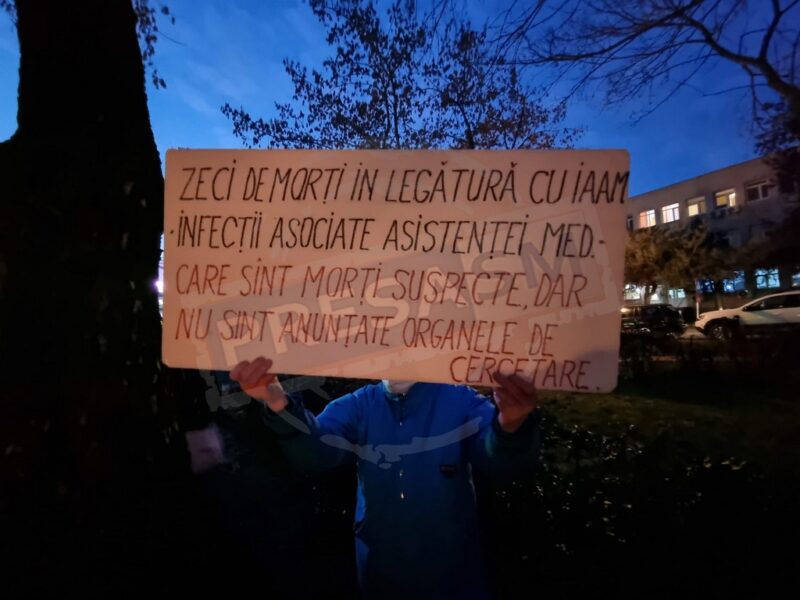 ZECI DE MORȚI ÎN LEGĂTURĂ CU IAAM
- INFECȚII ASOCIATE ASISTENȚEI MED.-
CARE SÎNT MORȚI SUSPECTE, DAR
NU SÎNT ANUNȚATE ORGANELE DE
CERCETARE.
PRESASM